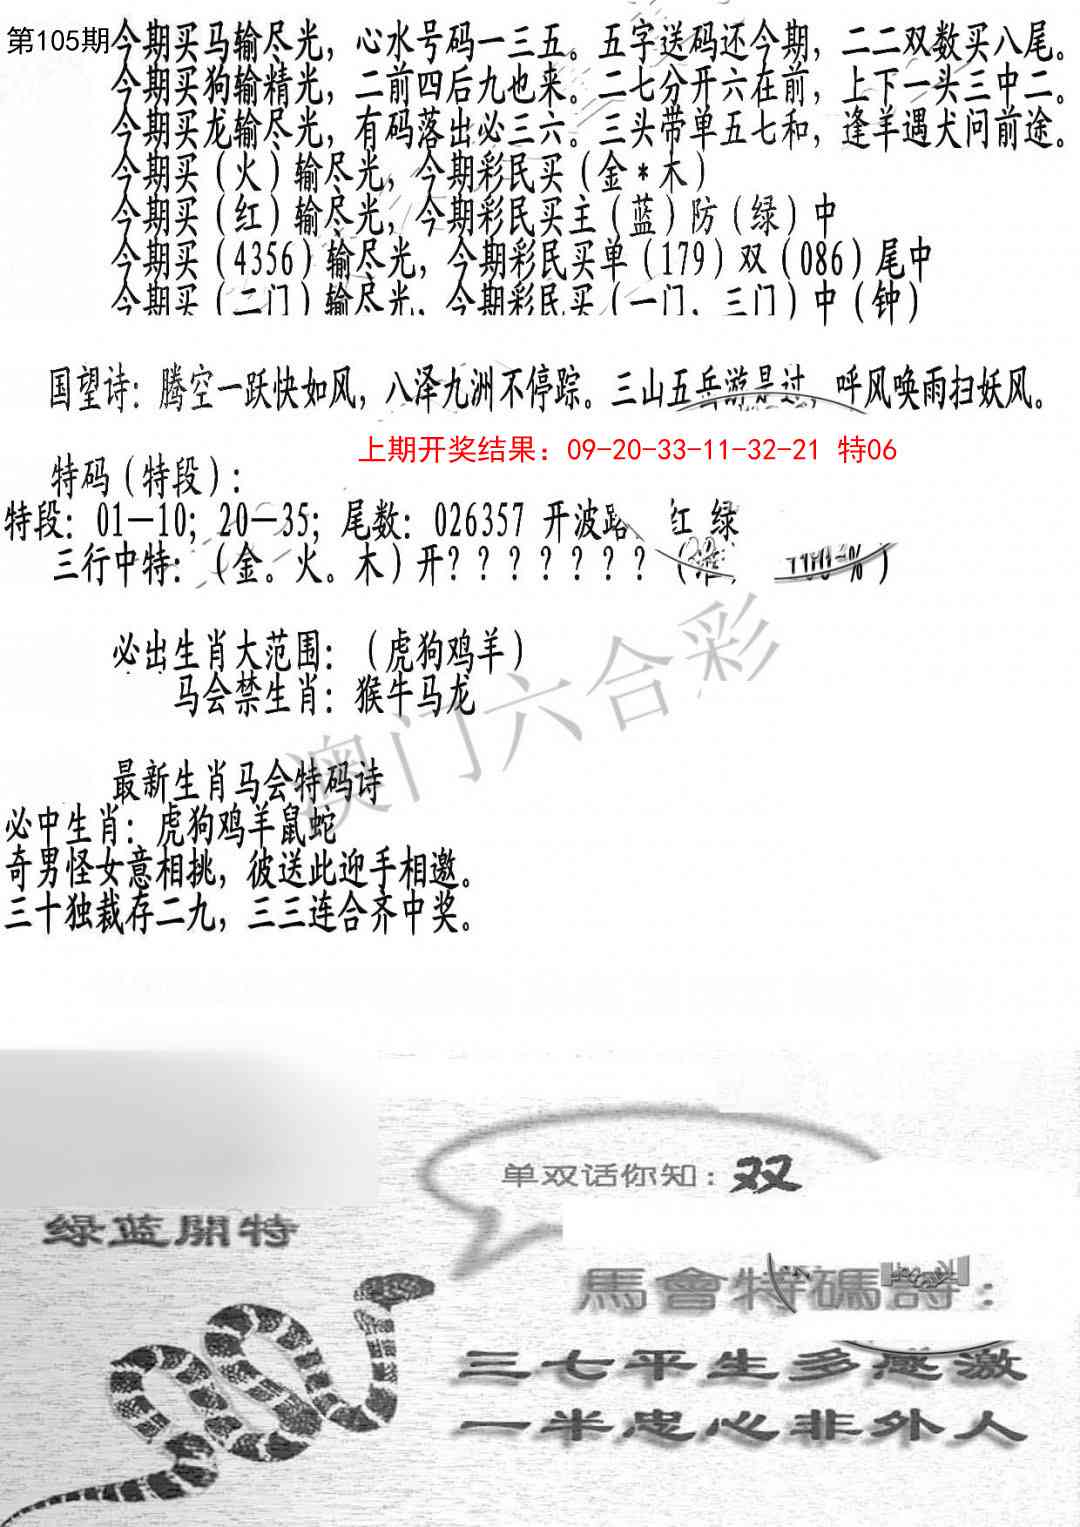 第105期今期买马输尽光，心水号码一三五。五字送码还今期，二二双数买八尾。
今期买狗输精光，二前四后九也来。二七分开六在前，上下一头三中二。
今期买龙输尽光，有码落出必三六。三头带单五七和，逢羊遇犬问前途。
今期买（火）输尽光，今期彩民买（金*木）
今期买（红）输尽光，今期彩民买主（蓝）防（绿）中
今期买（4356）输尽光，今期彩民买单（179）双（086）尾中
今期买（二门）输尽光，今期彩民买（一门，三门）中（钟）
国望诗：腾空一跃快如风，八泽九洲不停踪。三山五岳游是过，呼风唤雨扫妖风。
上期开奖结果：09-20-33-11-32-21 特06
特码（特段）：
特段：01—10；20—35；尾数：026357 开波路 红 绿
三行中特：（金。火。木）开???????（
必出生肖大范围：（虎狗鸡羊）
马会禁生肖：猴牛马龙
澳门六合彩
最新生肖马会特码诗
必中生肖：虎狗鸡羊鼠蛇
奇男怪女意相挑，彼送此迎手相邀。
三十独裁存二九，三三连合齐中奖。
单双话你知：双
绿蓝開特
馬會特碼詩：
三七平生多感激
一半忠心非外人